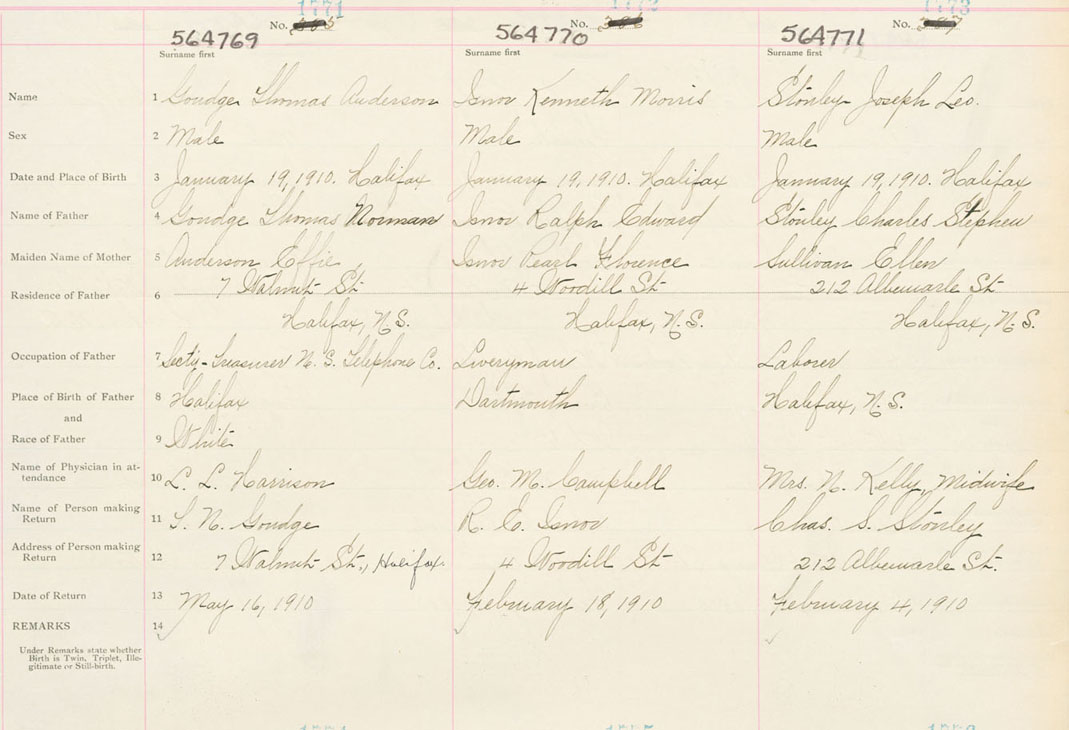 1771 1772 1773
No. No. No.
564769 564770 564771
Surname first Surname first Surname first
Name 1 Goudge Thomas Anderson Isnor Kenneth Morris Stonley Joseph Leo.
Sex 2 Male Male Male
Date and Place of Birth 3 January 19, 1910. Halifax January 19, 1910. Halifax January 19, 1910. Halifax
Name of Father 4 Goudge Thomas Norman Isnor Ralph Edward Stonley Charles Stephen
Maiden Name of Mother 5 Anderson Effie Isnor Pearl Florence Sullivan Ellen
7 Walnut St. 4 Woodill St 212 Albemarle St
Residence of Father 6
Halifax, N.S. Halifax, N.S. Halifax, N.S.
Occupation of Father 7 Secty-Treasurer N. S. Telephone Co. Liveryman Laborer
Place of Birth of Father 8 Halifax Dartmouth Halifax, N.S.
and
Race of Father 9 White
Name of Physician in at-
tendance 10 L. L. Harrison Geo. M. Campbell Mrs. N. Kelly, Midwife
Name of Person making
Return 11 T. N. Goudge R. E. Isnor Chas. S. Stonley
Address of Person making
Return 12 7 Walnut St., Halifax. 4 Woodill St 212 Albemarle St.
Date of Return 13 May 16, 1910 February 18, 1910 February 4, 1910
REMARKS 14
Under Remarks state whether
Birth is Twin, Triplet, Ille-
gitimate or Still-birth.